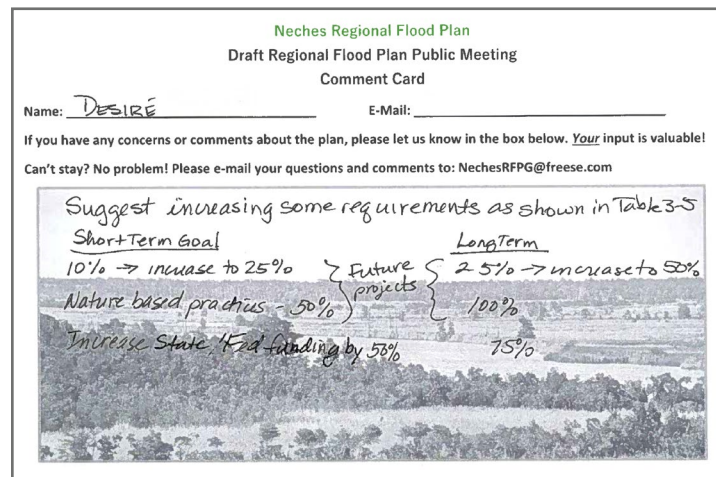 Neches Regional Flood Plan
Draft Regional Flood Plan Public Meeting
Comment Card
Name: DESIRÉ E-Mail:
If you have any concerns or comments about the plan, please let us know in the box below. Your input is valuable!
Can't stay? No problem! Please e-mail your questions and comments to: NechesRFPG@freese.com
Suggest increasing some requirements as shown in Table 3-5
Short Term Goal Long Term
10% → increase to 25% } Future projects { 25% → increase to 50%
Nature based practices - 50% 100%
Increase State/Fed funding by 50% 75%